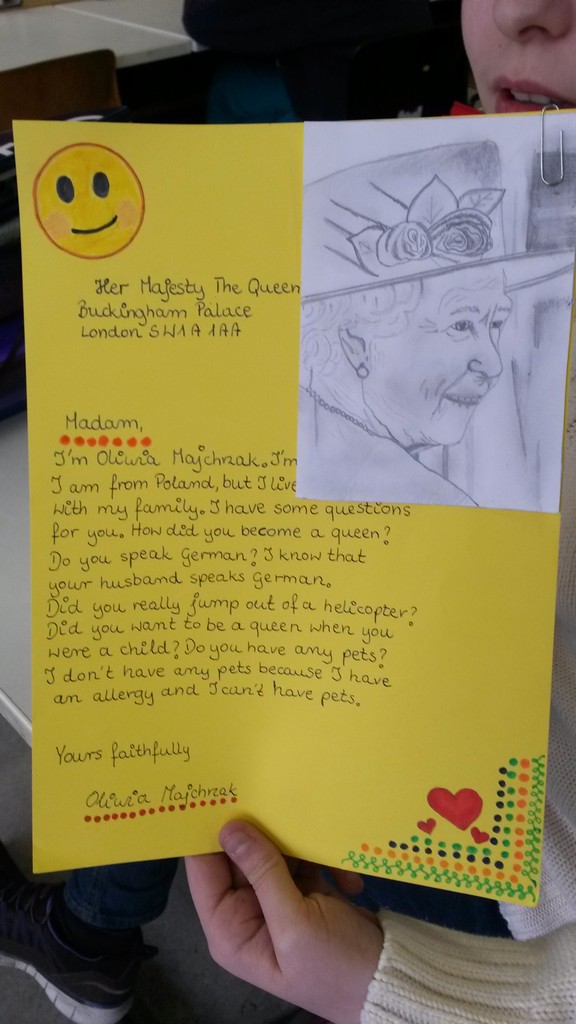 Her Majesty The Queen
Buckingham Palace
London SW1A 1AA
Madam,
I'm Oliwia Majchrzak. I'm
I am from Poland, but I live
with my family. I have some questions
for you. How did you become a queen?
Do you speak German? I know that
your husband speaks German.
Did you really jump out of a helicopter?
Did you want to be a queen when you
were a child? Do you have any pets?
I don't have any pets because I have
an allergy and I can't have pets.
Yours faithfully
Oliwia Majchrzak